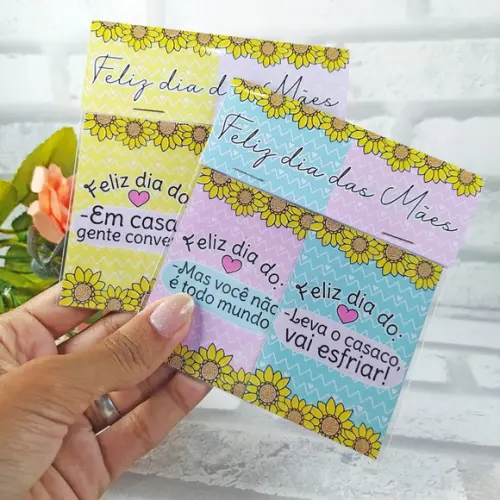 Feliz dia das Mães
Feliz dia do:
-Em casa
gente conver
Feliz dia das Mães
Feliz dia do:
-Mas você não
é todo mundo
Feliz dia do:
-Leva o casaco,
vai esfriar!